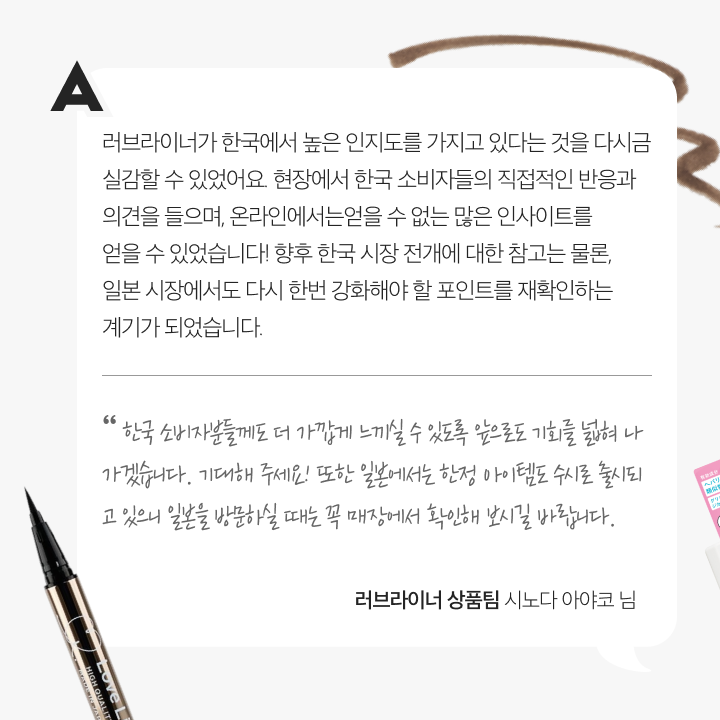 A
러브라이너가 한국에서 높은 인지도를 가지고 있다는 것을 다시금
실감할 수 있었어요. 현장에서 한국 소비자들의 직접적인 반응과
의견을 들으며, 온라인에서는얻을 수 없는 많은 인사이트를
얻을 수 있었습니다! 향후 한국 시장 전개에 대한 참고는 물론,
일본 시장에서도 다시 한번 강화해야 할 포인트를 재확인하는
계기가 되었습니다.
“ 한국 소비자분들께도 더 가깝게 느끼실 수 있도록 앞으로도 기회를 넓혀 나
가겠습니다. 기대해 주세요! 또한 일본에서는 한정 아이템도 수시로 출시되
고 있으니 일본을 방문하실 때는 꼭 매장에서 확인해 보시길 바랍니다.
러브라이너 상품팀 시노다 아야코 님
Love L
HIGH QUALIT